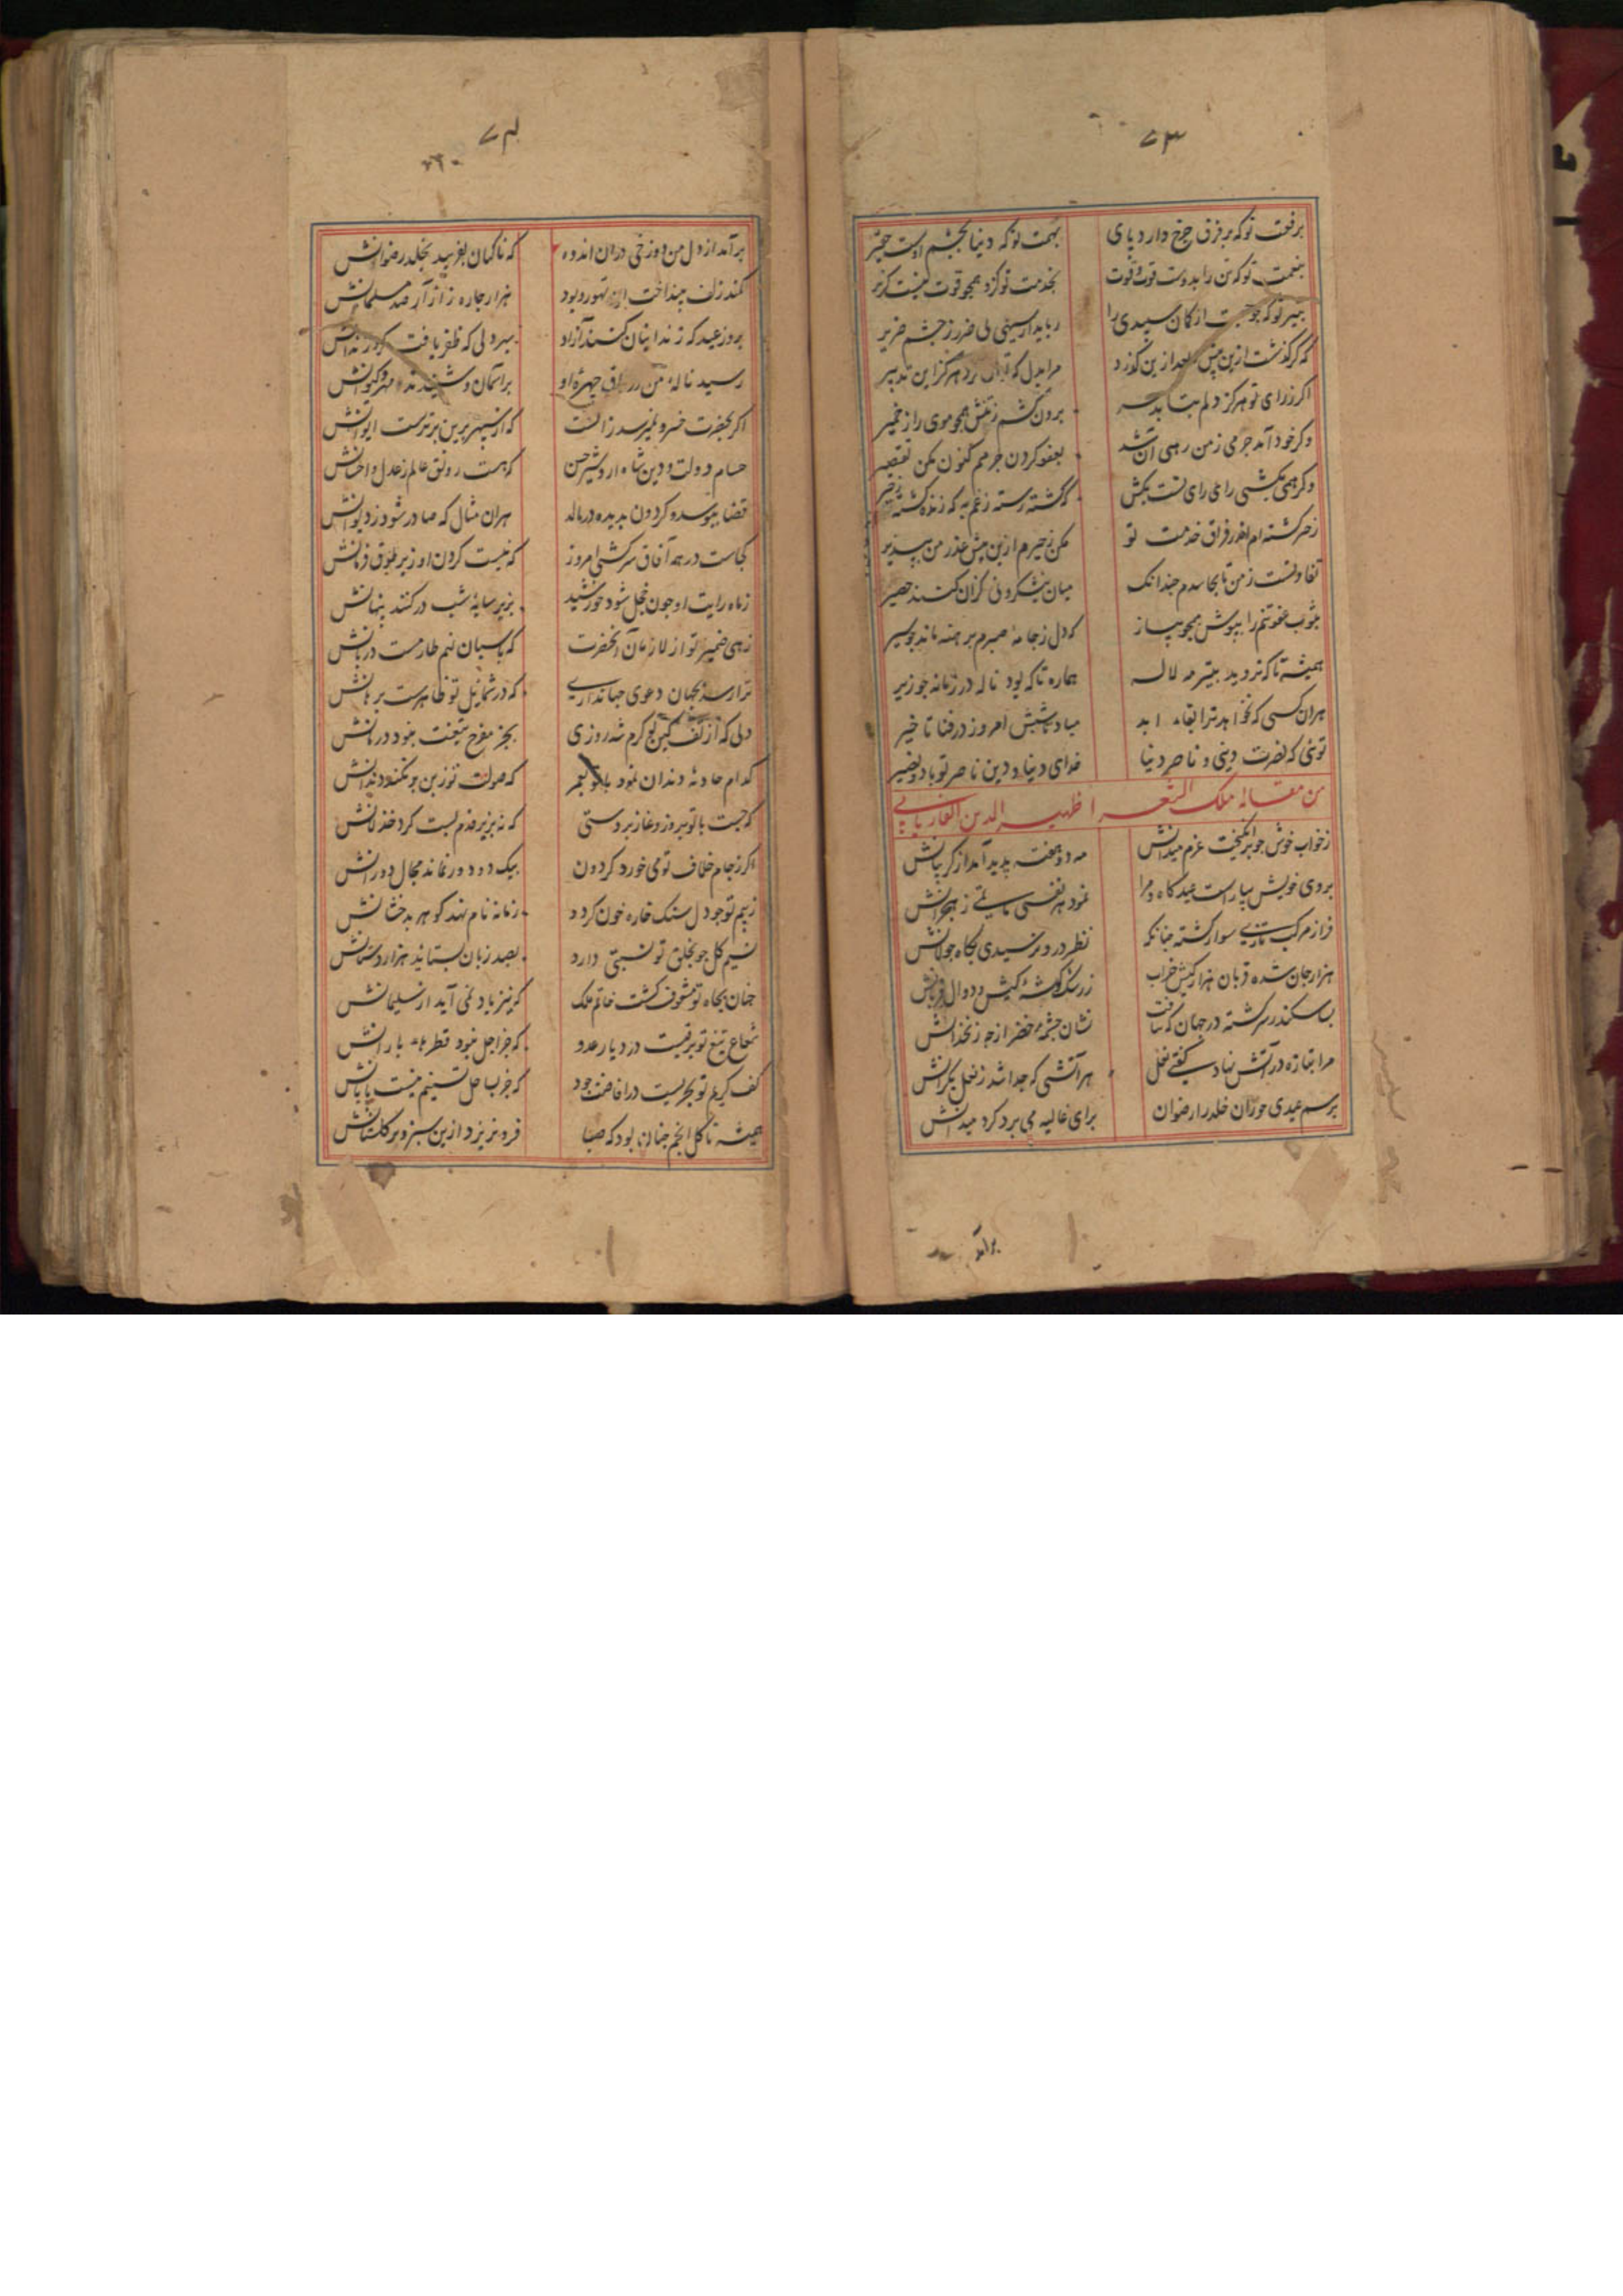 ۷۳
برفعت تو که بر فرق چرخ دارد پای بهمت تو که دنیا بچشم اوست حقیر
بنعمت تو که تن را بدوست قوت و قوت بخدمت تو کزو همچو قوت نیست کزیر
بتیر تو که جو جست از کمان سپیدی را رباید از سیتی بی ضرر ز چشم ضریر
که کر گذشت ازین پیش بعد ازین گذرد مرا بدل که هرکز این تدبیر
اکر ز رای تو هرکز دلم بتابد سر برون کشم ز تنش همچو موی را ز خمیر
وکر خود آمد جرمی ز من رهی آن شد بعفو کردن جرمم کنون مکن تقصیر
وکر همی بکشی رای رای تست بکش که کشته رسته ز غم به که زنده کشته زحیر
زحیر کشته ام اندر فراق خدمت تو مکن زحیرم ازین پیش عذر من بپذیر
تفاوتست ز من تا بحاسدم چندانک میان نیشکر و نی کزان کنند حصیر
بثوب عفو تنم را بپوش همچو پیاز که دل ز جامه صبرم برهنه ماند چو سیر
همیشه تا که نروید بتیر مه لاله هماره تا که بود ناله در زمانه جو زیر
هران کسی که نخواهد ترا بقاء ابد مباد هستیش امروز در فنا تاخیر
توئی که نصرت دینی و ناصر دنیا خدای دنیا و دین ناصر تو باد و نصیر
من مقاله ملک الشعرا ظهیر الدین الفاریابی
ز خواب خوش جو برانکیخت عزم میدانش مه دو هفته پدید آمد از کریبانش
بروی خویش بیاراست عیدکاه و مرا نمود هر نفسی ماتمی ز هجرانش
فراز مرکب تازی سوار کشته چنانکه نظر درو نرسیدی بگاه جولانش
هزار جان شده قربان هزار کیش خراب ز رشک کوشهٔ کیش و دوال قربانش
بسا سکندر سرکشته در جهان که نیافت نشان چشمه خضر از چه زنخدانش
مرا بتازه در آتش نهاد گفتی نعل هر آتشی که جدا شد ز نعل یکرانش
برسم عیدی حوران خلد را رضوان برای غالیه می برد کرد میدانش
برآمد
۷۴
برآمد از دل من دوزخی دران اندوه که ناکهان بفریبد بخلد رضوانش
کمند زلف بینداخت تهور بود هزار چاره ز آزار صد مسلمانش
بروز عید که زندانیان کنند آزاد ببرد دلی که ظفر یافت کرد زندانش
رسید نالهٔ من در فراق چهرهٔ او بر آسمان و شنیدند مهر و کیوانش
اکر بحضرت خسرو نمیرسد زانست که از سپهر برین برترست ایوانش
حسام دولت و دین شاه اردشیر حسن که هست رونق عالم ز عدل و احسانش
قضا ببوسد و کردون بدیده در مالد هران مثال که صادر شود ز دیوانش
کجاست در همه آفاق سرکشی امروز که نیست کردن او زیر طوق فرمانش
ز ماه رایت او چون خجل شود خورشید بزیر سایهٔ شب در کنند پنهانش
زهی ضمیر تو از لازمان آن حضرت که پاسبان نهم طارمست دربانش
ترا رسد بجهان دعوی جهانداری که در شمایل تو ظاهرست برهانش
دلی که از تف کین تو کرم شد روزی بجز مفرح تیغت نبود درمانش
کدام حادثه دندان نمود با تو بعمر که صولت تو ز بن برنکند دندانش
که جست با تو بروز وغا زبردستی که نه بزیر قدم پست کرد خذلانش
اکر ز جام خلاف تو می خورد کردون بیک دو دور نماند مجال دورانش
ز بیم تو چو دل سنک خاره خون کردد زمانه نام نهد کوهر بدخشانش
نسیم کل جو بخلق تو نسبتی دارد بصد زبان بستاید هزار دستانش
چنان بجاه تو مشعوف کشت خاتم ملک که نیز یاد نمی آید از سلیمانش
شعاع تیغ تو برقیست در دیار عدو که جز اجل نبود قطرهاء بارانش
کف کریم تو بحریست در افاضت جود که جز بساحل تسنیم نیست پایانش
همیشه تا کل انجم چنان بود که صبا فرو نریزد ازین سبز و تر کلستانش